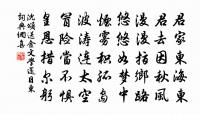 君家東海東
君去因秋風
漫漫指鄉路
悠悠如夢中
煙霧積孤島
波濤連太空
冒險當不懼
皇恩措爾躬
沈頌送金文學還日東
詞典網喜